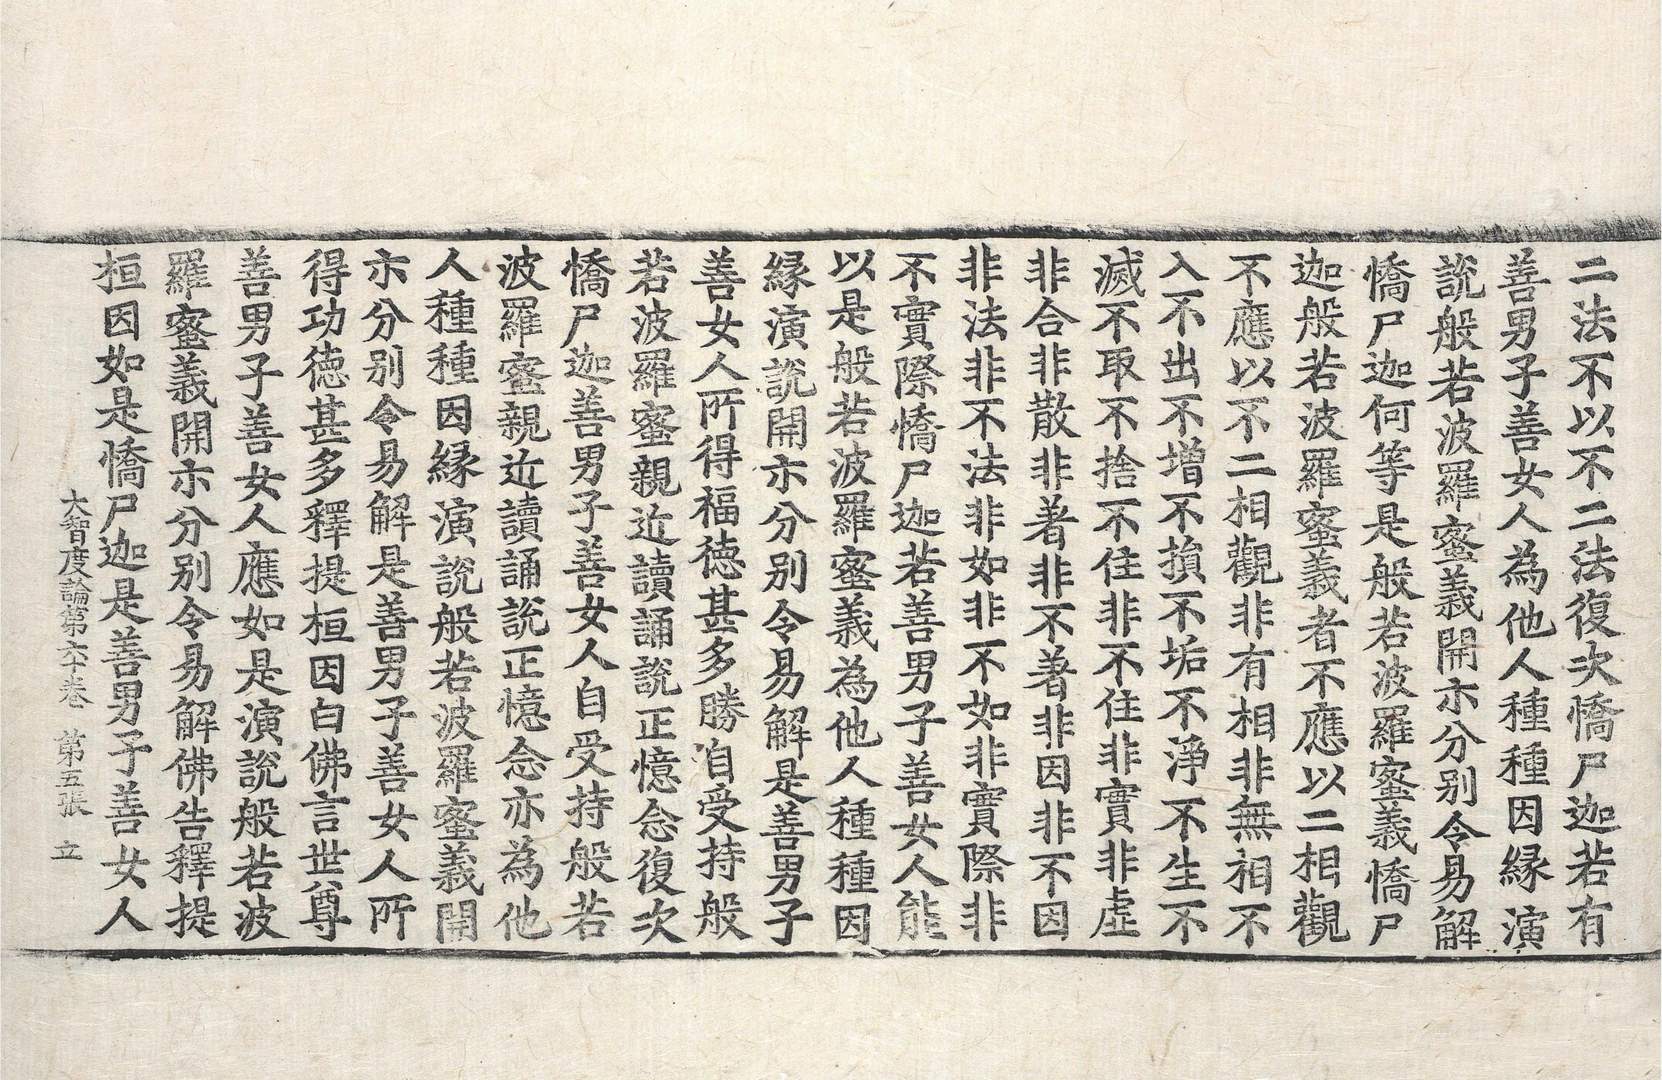 二法不以不二法復次憍尸迦若有
善男子善女人為他人種種因緣演
說般若波羅蜜義開示分別令易解
憍尸迦何等是般若波羅蜜義憍尸
迦般若波羅蜜義者不應以二相觀
不應以不二相觀非有相非無相不
入不出不增不損不垢不淨不生不
滅不取不捨不住非不住非實非虛
非合非散非著非不著非因非不因
非法非不法非如非不如非實際非
不實際憍尸迦若善男子善女人能
以是般若波羅蜜義為他人種種因
緣演說開示分別令易解是善男子
善女人所得福德甚多勝自受持般
若波羅蜜親近讀誦說正憶念復次
憍尸迦善男子善女人自受持般若
波羅蜜親近讀誦說正憶念亦為他
人種種因緣演說般若波羅蜜義開
示分別令易解是善男子善女人所
得功德甚多釋提桓因白佛言世尊
善男子善女人應如是演說般若波
羅蜜義開示分別令易解佛告釋提
桓因如是憍尸迦是善男子善女人
大智度論第六十卷 第五張 立